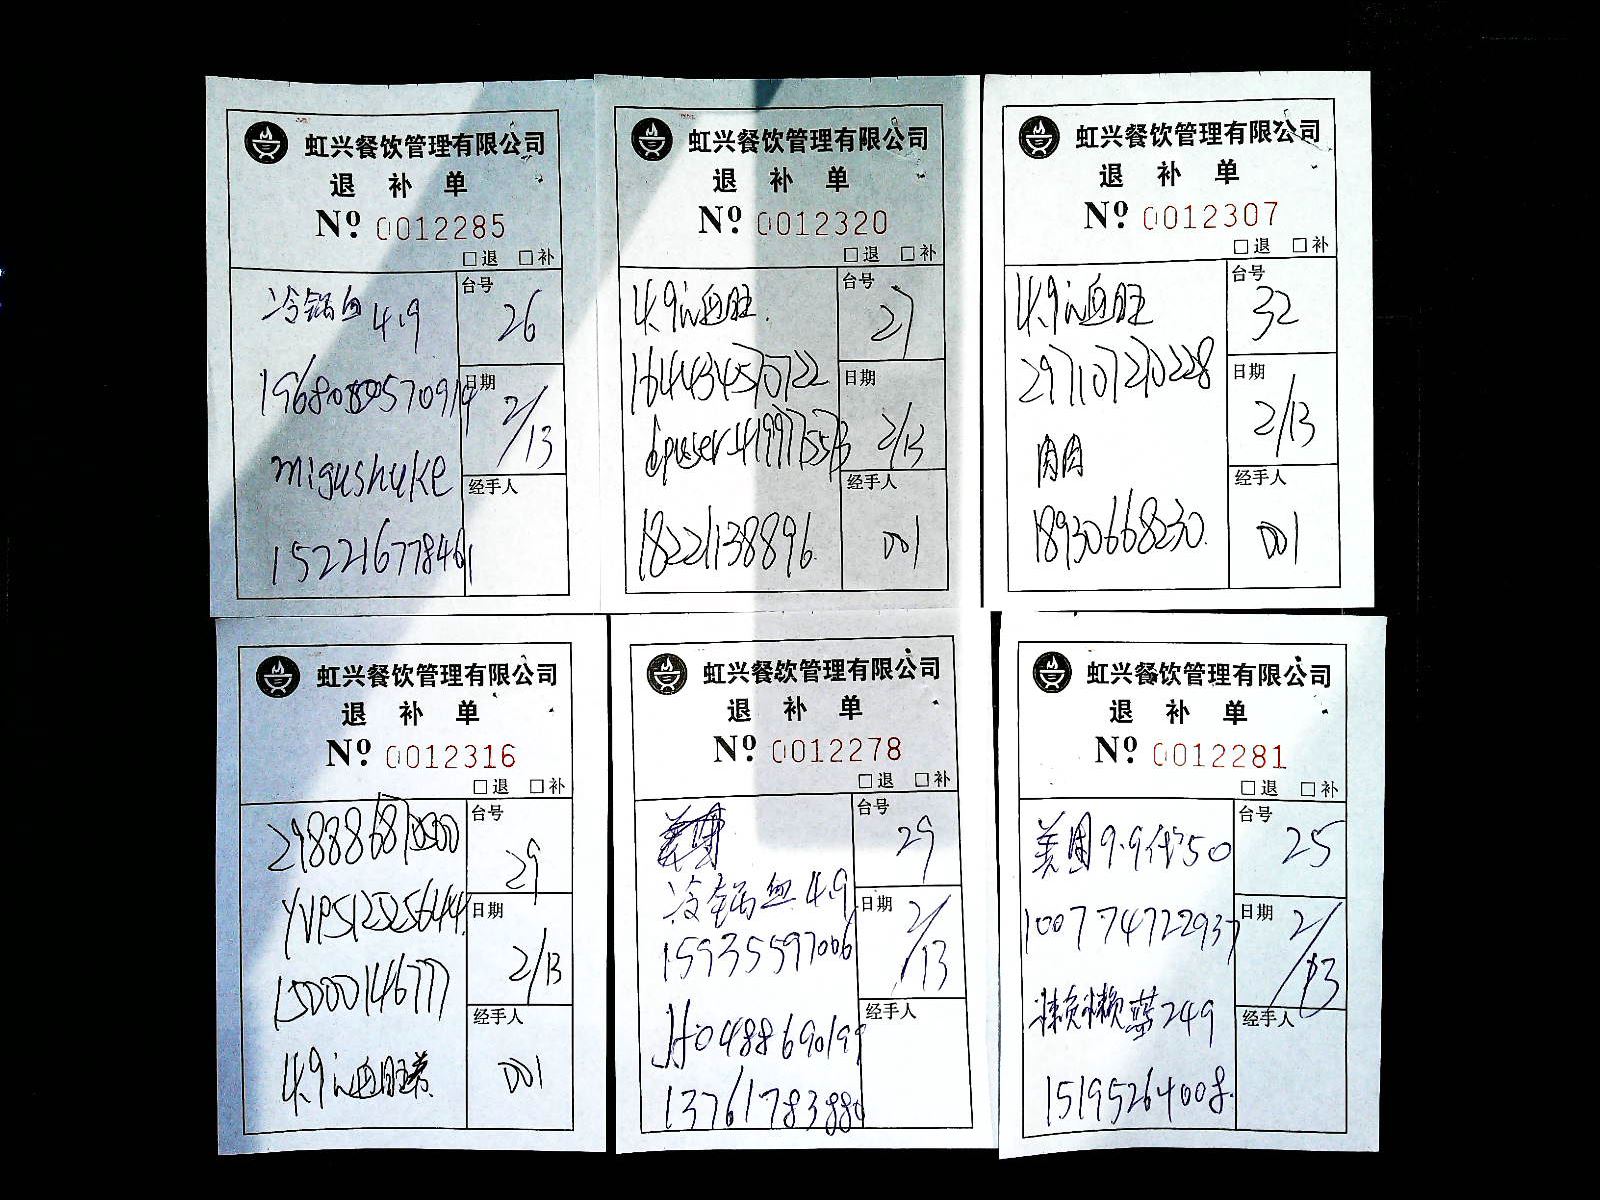 虹兴餐饮管理有限公司
退 补 单
Nº 0012285
□退 □补
冷锅血 4.9
台号
26
日期
2/13
migushuke
经手人
15221677846
虹兴餐饮管理有限公司
退 补 单
Nº 0012320
□退 □补
4.9元血旺
台号
27
164434570722
日期
2/13
经手人
18221138896
001
虹兴餐饮管理有限公司
退 补 单
Nº 0012307
□退 □补
4.9元血旺
台号
32
297107210228
日期
2/13
肉肉
经手人
18930668230
001
虹兴餐饮管理有限公司
退 补 单
Nº 0012316
□退 □补
台号
29
日期
2/13
15000146777
经手人
4.9元血旺
001
虹兴餐饮管理有限公司
退 补 单
Nº 0012278
□退 □补
台号
29
冷锅血 4.9
15935597006
日期
2/13
JH0488690199
经手人
虹兴餐饮管理有限公司
退 补 单
Nº 0012281
□退 □补
美团9.9代50
台号
25
100774722937
日期
2/13
懒懒蓝249
经手人
15195264008